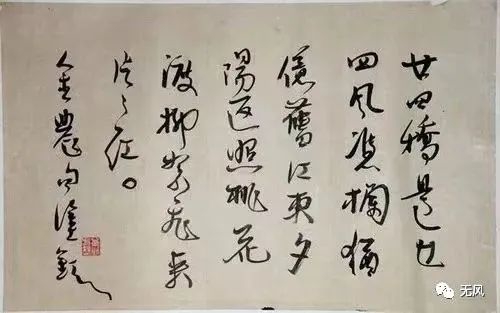 廿四橋邊廿
四風憑欄猶
憶舊江東夕
陽返照桃花
渡柳絮飛來
片々紅。
金農句
无风